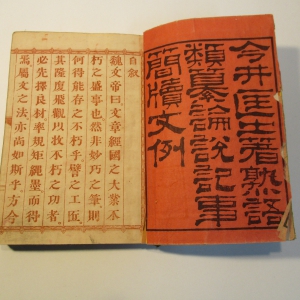 今井匡之著熟語
類纂論説記事
簡牘文例
自叙
魏文帝曰文章經國之大業不
朽之盛事也然非妙巧之筆則
何得能存之不朽乎譬之工匠
其隆廈飛觀以收不朽之功者
必先擇良材率規矩繩墨而得
焉屬文之法亦尚如斯乎方今